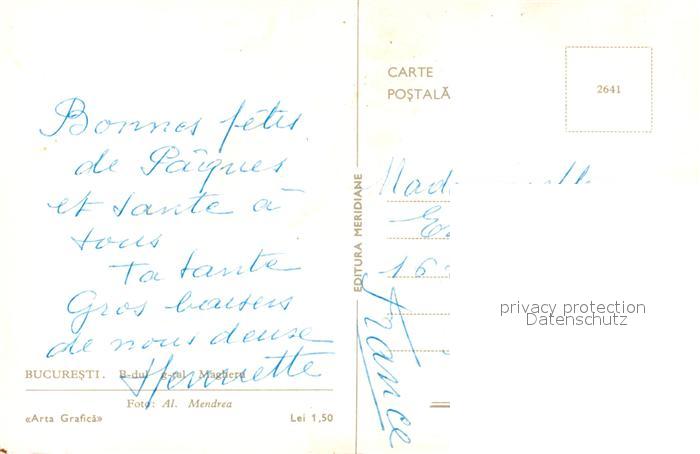 Bonnes fêtes
de Pâques
et santé à
tous
Ta tante
Gros baisers
de nous deux
Henriette
BUCUREŞTI. B-dul g-ral Magheru
Foto: Al. Mendrea
«Arta Grafică» Lei 1,50
EDITURA MERIDIANE
CARTE
POŞTALĂ
2641
16
France
privacy protection
Datenschutz